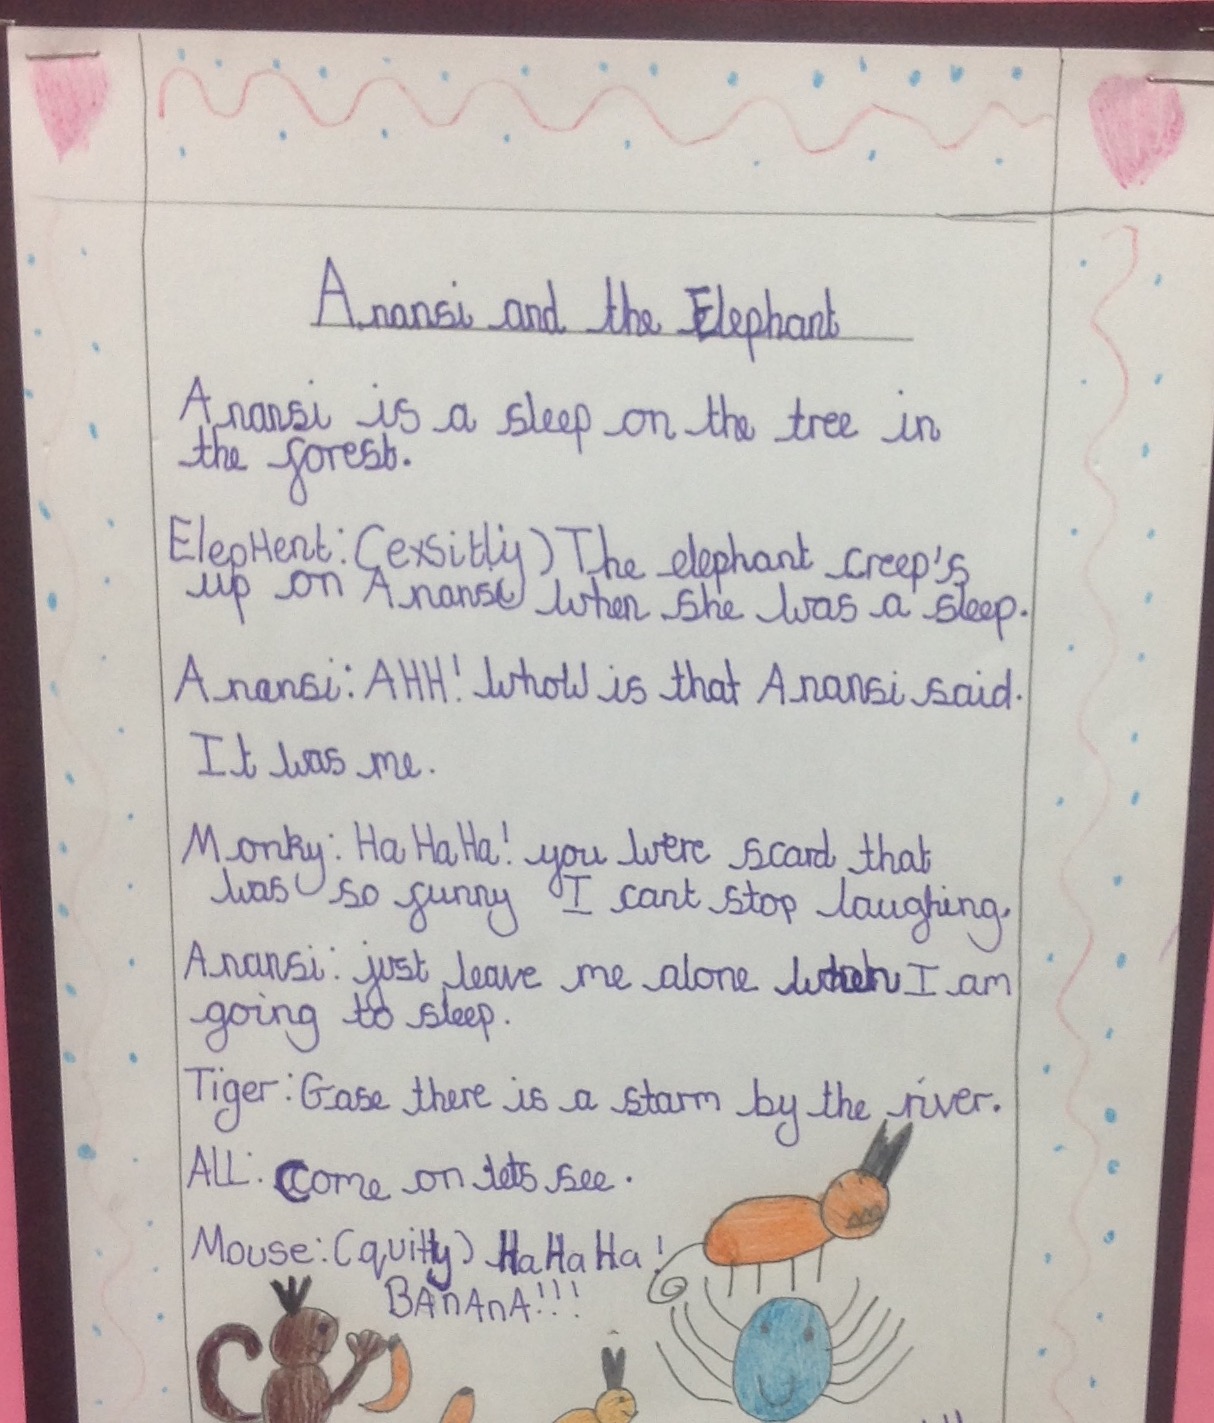 Anansi and the Elephant
Anansi is a sleep on the tree in
the forest.
ElepHent: (exsitliy) The elephant creep's
up on Anansi when she was a sleep.
Anansi: AHH! whoW is that Anansi said.
It was me.
Monky: Ha Ha Ha! you were scard that
was so funny I cant stop laughing.
Anansi: just leave me alone when I am
going to sleep.
Tiger: Gase there is a starm by the river.
ALL: Come on lets see.
Mouse: (quitly) Ha Ha Ha!
BAnAnA!!!